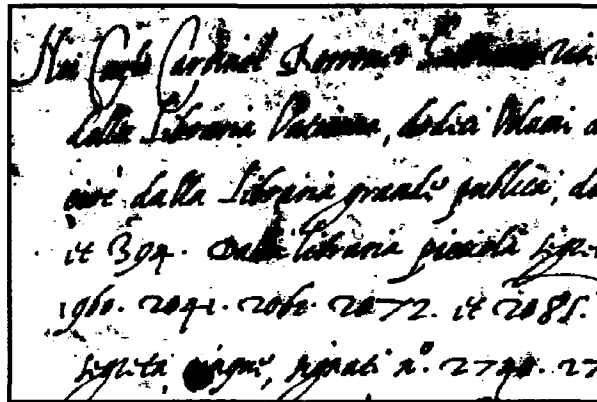 Noi Carlo Cardinal Borromeo
dalla Libraria Vaticana, dodici Volumi
cioè dalla Libraria grande publica,
et 394. Dalla libraria piccola
1960. 2041. 2062. 2072. et 2085.
segreta cinque, signati nº. 2790. 27